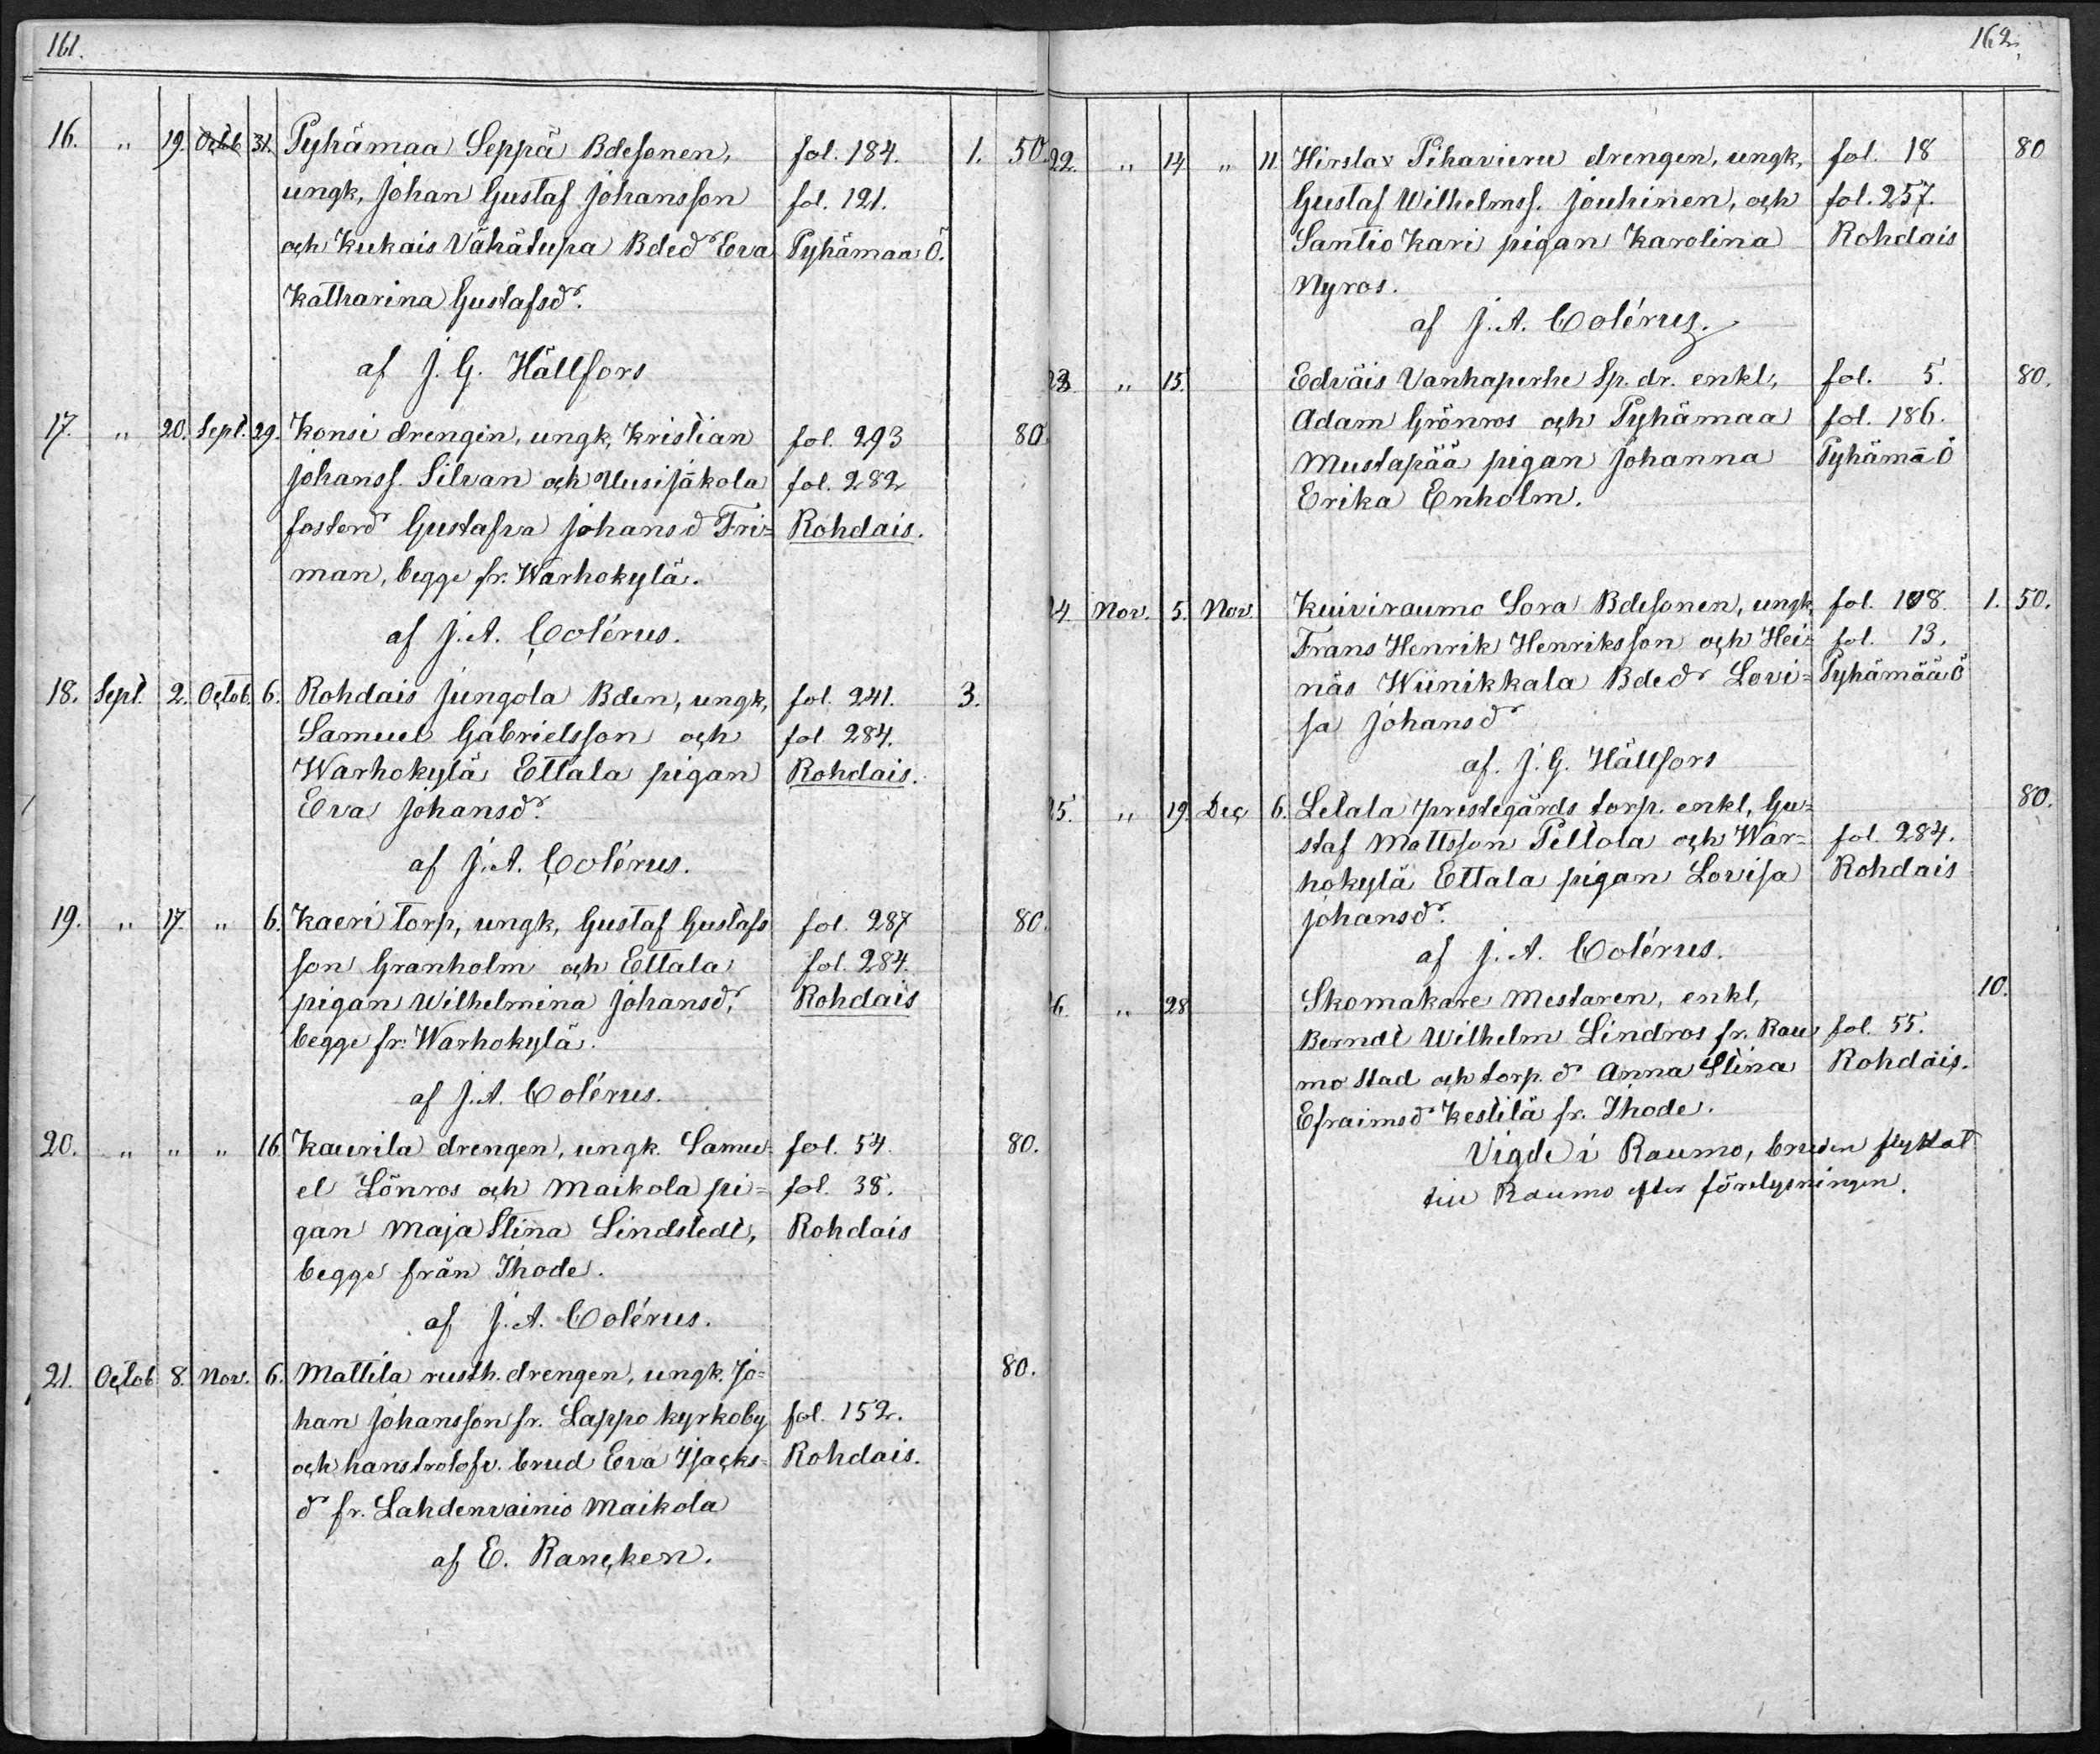 161.
16. " 19. Octob 31. Pyhämaa Seppä Bdesonen, fol. 184. 1. 50.
ungk, Johan Gustaf Johansson fol. 121.
och Kukais Vähätupa Bded.r Eva Pyhämaa Ö.
Katharina Gustafsd.r
af J. G. Hällfors
17. " 20. Sept. 29. Konsi drengin, ungk, Kristian fol. 293 80.
Johanss. Silvan och Uusijäkola fol. 282
fosterd.r Gustafva Johansd Fri= Rohdais.
man, begge fr. Warhokylä.
af J. A. Colérus.
18. Sept. 2. Octob. 6. Rohdais Jungola Bden, ungk, fol. 241. 3.
Samuel Gabrielsson och fol 284.
Warhokylä Ettala pigan Rohdais.
Eva Johansd.r
af J. A. Colérus.
19. " 17. " 6. Kaeri torp, ungk, Gustaf Gustafs fol. 287 80.
son Granholm och Ettala fol. 284.
pigan Wilhelmina Johansd.r Rohdais
begge fr. Warhokylä.
af J. A. Colérus.
20. " " " 16 Kaurila drengen, ungk. Samu= fol. 54. 80.
el Lönros och Maikola pi= fol. 38.
gan Maja Stina Lindstedt, Rohdais
begge från Ihode.
af J. A. Colérus.
21. Octob 8. Nov. 6. Mattila rusth. drengen, ungk. Jo= 80.
han Johansson fr. Lappo kyrkoby fol. 152.
och hans trolofv. brud Eva Isacks= Rohdais.
d.r fr. Lahdenvainio Maikola
af E. Rancken.
162.
22. " 14 " 11. Hirslax Pihavieru drengen, ungk, fol. 18 80
Gustaf Wilhelmss. Jouhinen, och fol. 257.
Santio Kari pigan Karolina Rohdais
Nyros.
af J. A. Colérus.
23. " 15. Edväis Vanhaperhe Sp. dr. enkl, fol. 5. 80.
Adam Grönros och Pyhämaa fol. 186.
Mustapää pigan Johanna Pyhämā Ö
Erika Enholm.
24. Nov. 5. Nov. Kuiviraumo Sora Bdesonen, ungk, fol. 108. 1. 50.
Frans Henrik Henriksson och Hei= fol. 13.
näs Wiinikkala Bded.r Lovi= Pyhämää Ö
sa Johansd.r
af. J. G. Hällfors
25. " 19. Dec 6. Letala prestegårds torp. enkl, Gu= 80.
staf Mattsson Peltola och War= fol. 284.
hokylä Ettala pigan Lovisa Rohdais
Johansd.r
af J. A. Colérus.
26. " 28 Skomakare Mestaren, enkl, 10.
Berndt Wilhelm Lindros fr. Rau fol. 55.
mo Stad och torp. d.r Anna Stina Rohdais.
Efraimsd.r Kestilä fr. Ihode.
Vigde i Raumo, bruden flyttat
till Raumo efter förelysningen.